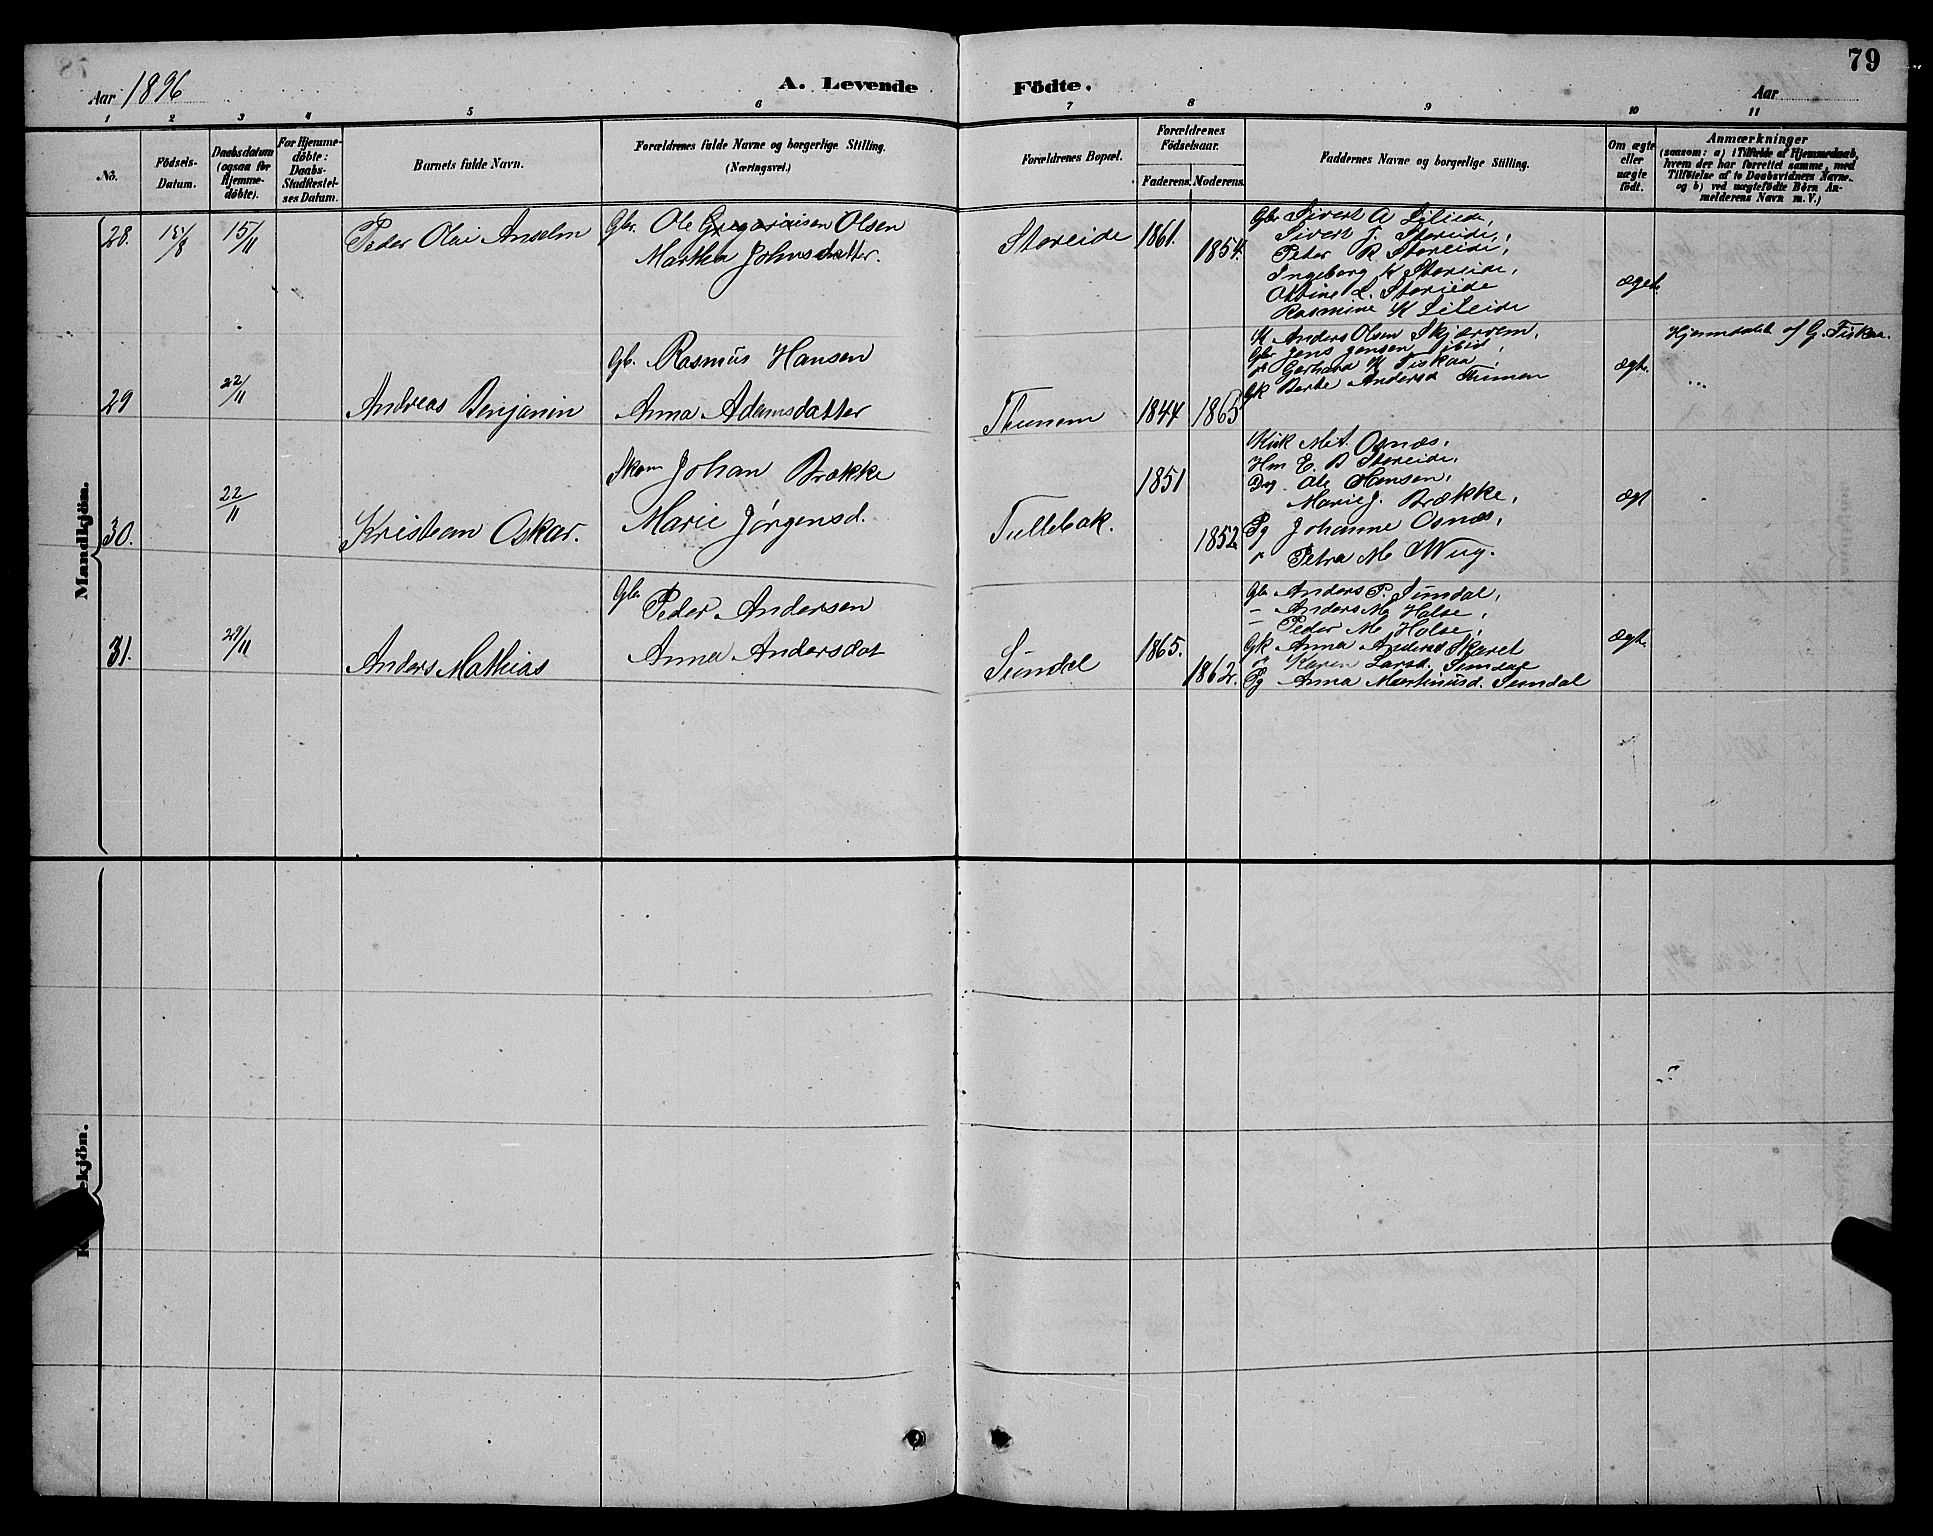 79
Aar 1896
A. Levende Födte.
Aar
1 2 3 4 5 6 7 8 9 10 11
No.
Födsels-
Datum.
Daabsdatum
(ogsaa for
Hjemme-
döbte).
For Hjemme-
döbte:
Daabs-
Stadfæstel-
ses Datum.
Barnets fulde Navn.
Forældrenes fulde Navne og borgerlige Stilling.
(Næringsvei.)
Forældrenes Bopæl.
Forældrenes
Födselsaar.
Faderens. Moderens.
Faddernes Navne og borgerlige Stilling.
Om ægte
eller
uægte
födt.
Anmærkninger
(saasom: a) i Tilfælde af Hjemmedaab,
hvem der har forrettet samme, med
Tilföielse af to Daabsvidners Navne,
og b) ved uægtefödte Börn An-
melderens Navn m. V.)
Mandkjön.
28. 15/8 15/11
Peder Olai Anselm
Gbr. Ole Gregoriusen Olsen
Martha Johnsdatter.
Storeide
1861.
1854.
Gbr Sivert A Lileide,
Sivert J. Storeide,
Peder R Storeide,
Ingeborg K Storeide,
Oline L. Storeide
Rasmine K Lileide
ægte.
29 22/11
Andreas Benjamin
Gb. Rasmus Hansen
Anna Adamsdatter
Thunem
1844 1865
K Anders Olsen Skjærvem,
Gbr Jens Jensen ibid,
Gerhard K Fiskaa
Gk Berte Andersd Thunem
ægt.
Hjemmdøbt af G. Fiskaa.
30. 22/11
Kristian Oskar.
Skom Johan Brække
Marie Jørgensd.
Tullebak.
1851
1852
Kirk M.A. Osnæs,
Hm E. B Storeide,
Dg. Ole Hansen,
Marie J. Brække,
Pg Johanne Osnæs,
Petra M Wug.
ægt
31. 29/11
Anders Mathias
Gbr Peder Andersen
Anna Andersdat
Sundal
1865.
1862.
Gbr Anders P. Sundal,
- Anders M Halse,
- Peder M Halse,
Gk Anna Andersd Skaret
Karen Larsd. Sundal
Pg Anna Martinusd. Sundal
ægt.